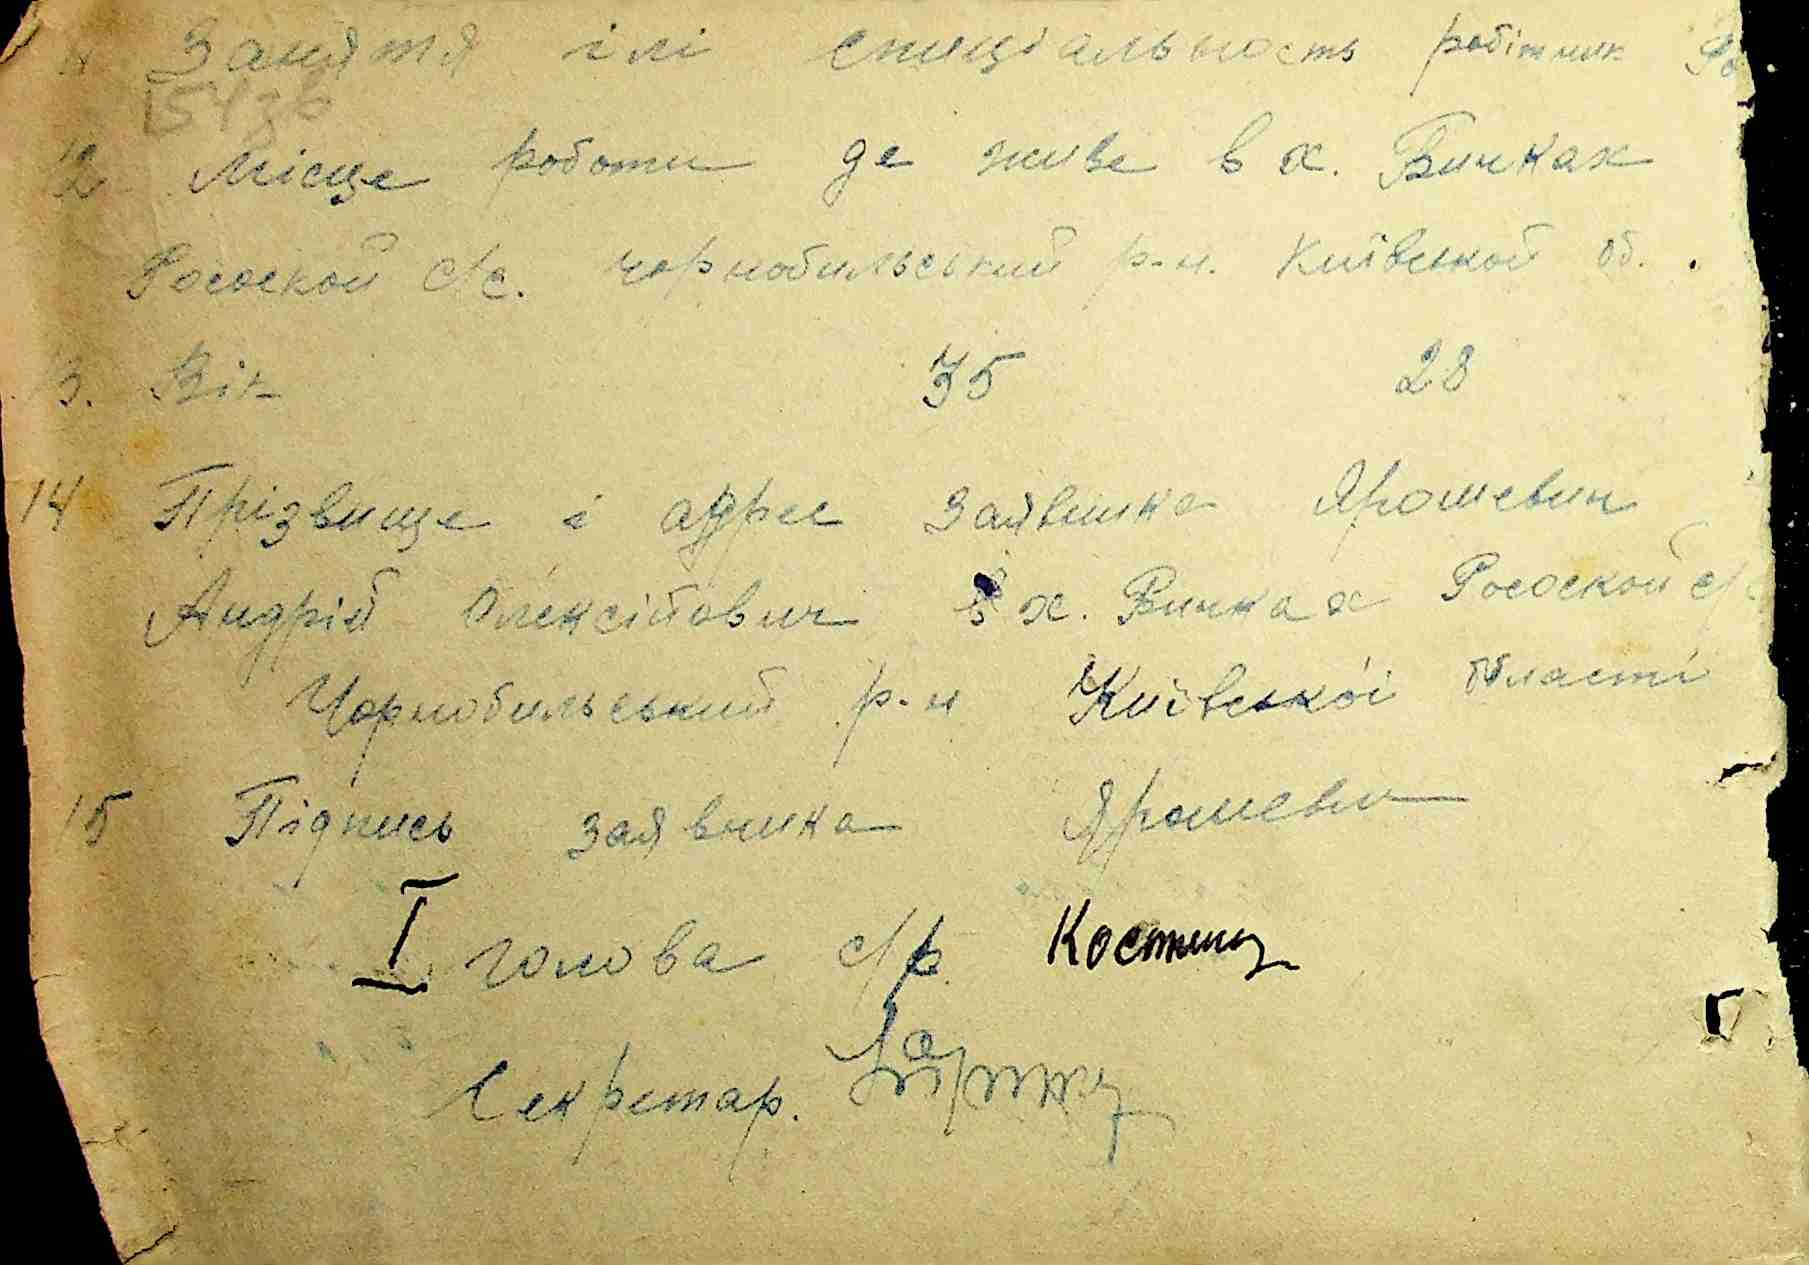 11 Заняття ілі специальность робітник
1543б
12 Місце роботи де живе в х. Вичках
Росоской с/с. Чорнобильський р-н. Київської об.
13. Вік 35 28
14 Прізвище і адрес заявника Ярошевич
Андрій Олексійович в х. Вичках Росоской с/с
Чорнобильський р-н Київської області
15 Підпись заявника Ярошевич
I голова с/р.
Секретар.